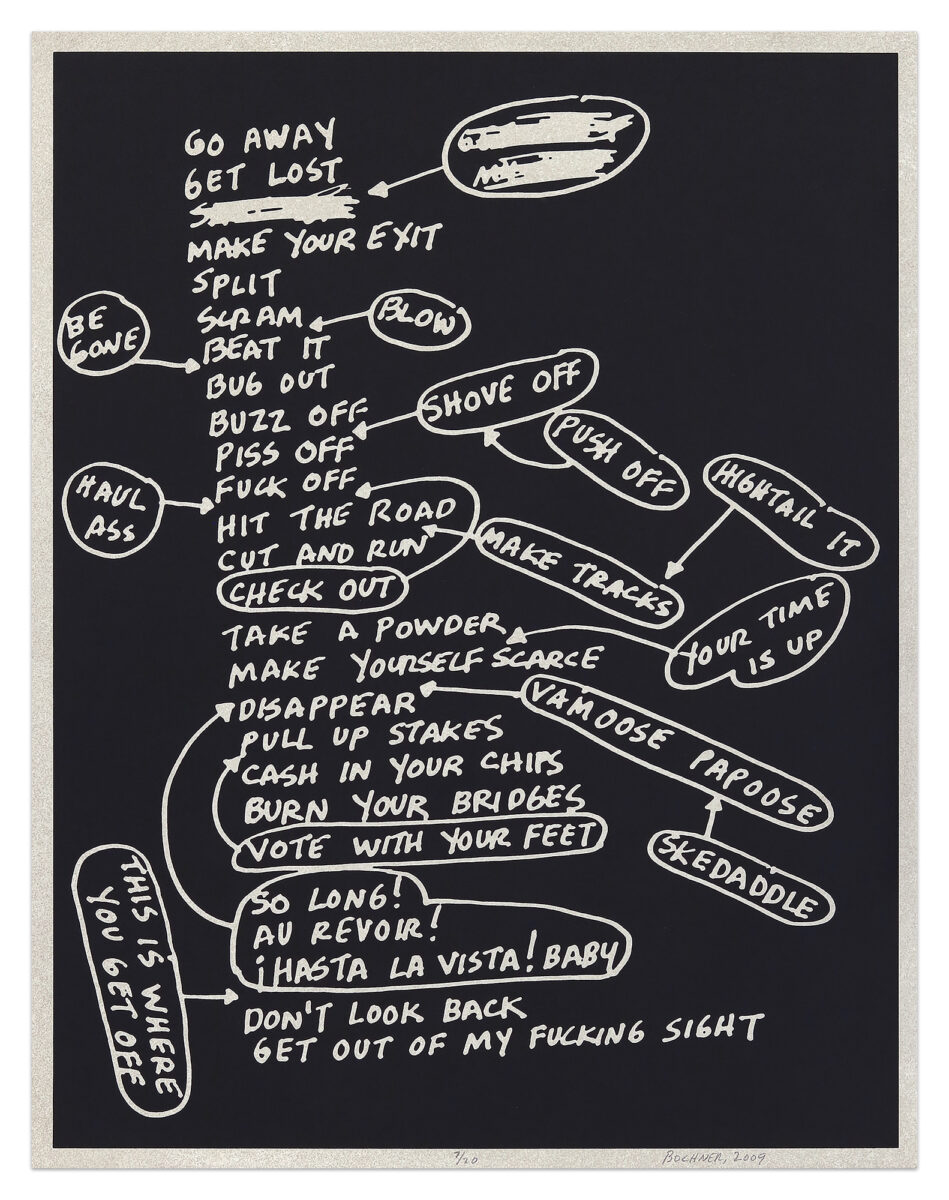 GO AWAY
GET LOST
MAKE YOUR EXIT
SPLIT
BE
GONE
SCRAM
BLOW
BEAT IT
BUG OUT
BUZZ OFF
SHOVE OFF
PISS OFF
PUSH OFF
FUCK OFF
HAUL
ASS
HIT THE ROAD
HIGHTAIL IT
CUT AND RUN
MAKE TRACKS
CHECK OUT
TAKE A POWDER
YOUR TIME
IS UP
MAKE YOURSELF SCARCE
DISAPPEAR
VAMOOSE PAPOOSE
PULL UP STAKES
CASH IN YOUR CHIPS
BURN YOUR BRIDGES
VOTE WITH YOUR FEET
SKEDADDLE
SO LONG!
AU REVOIR!
¡HASTA LA VISTA! BABY
THIS IS WHERE
YOU GET OFF
DON'T LOOK BACK
GET OUT OF MY FUCKING SIGHT
7/20
BOCHNER, 2009